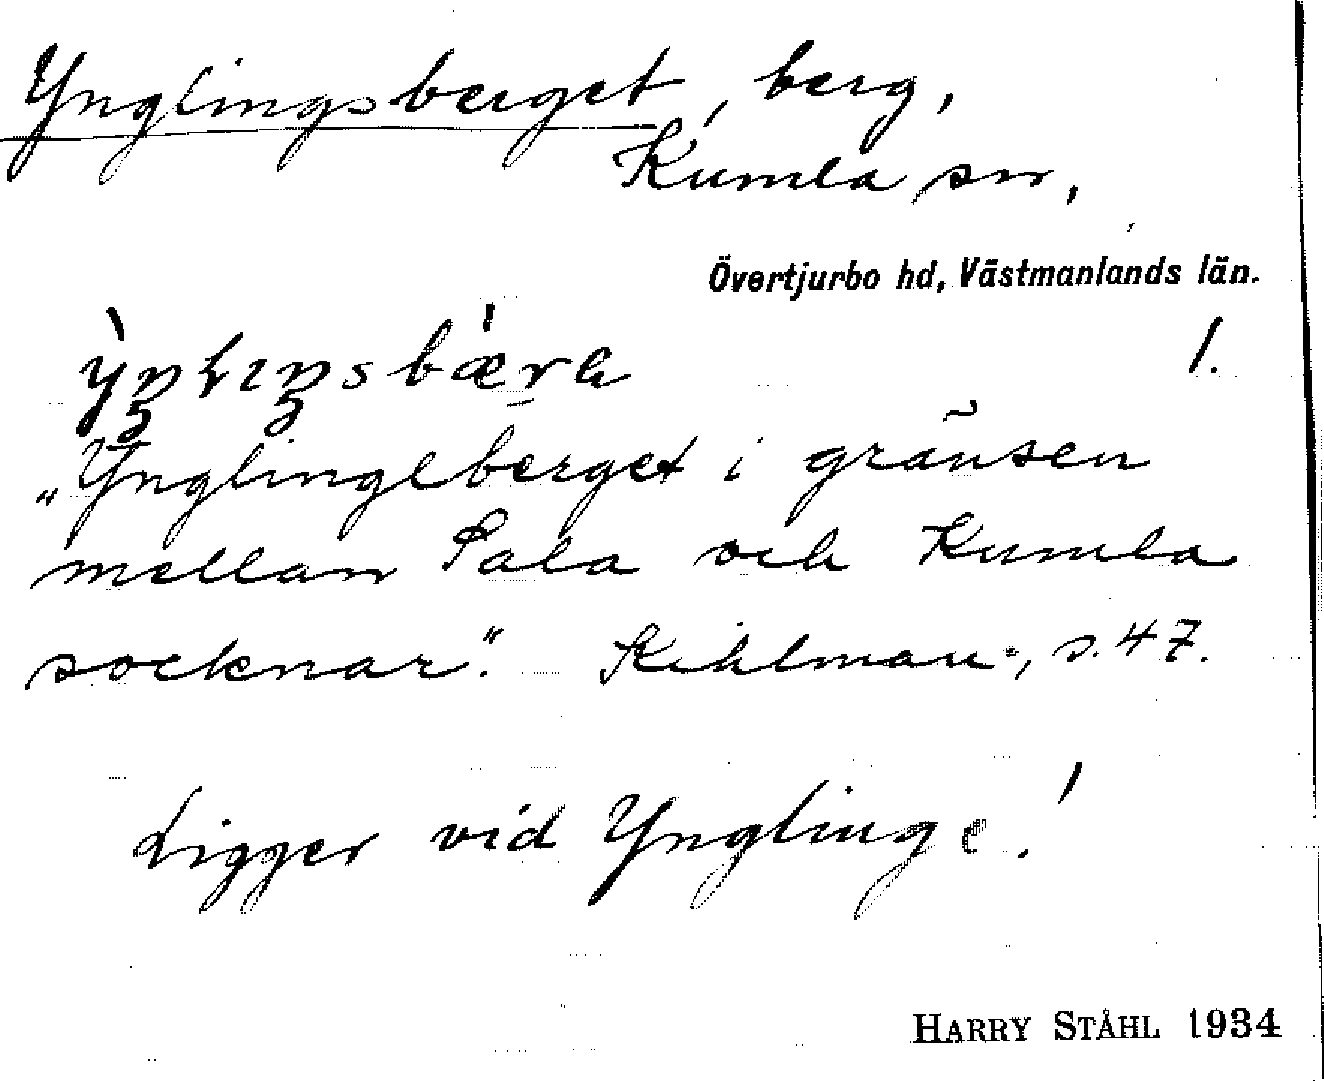 Ynglingsberget, berg,
Kumla sn,
Övertjurbo hd, Västmanlands län.
1.
"Ynglingeberget i gränsen
mellan Sala och Kumla
socknar". Kihlman, s. 47.
Ligger vid Ynglinge!
HARRY STÅHL 1934